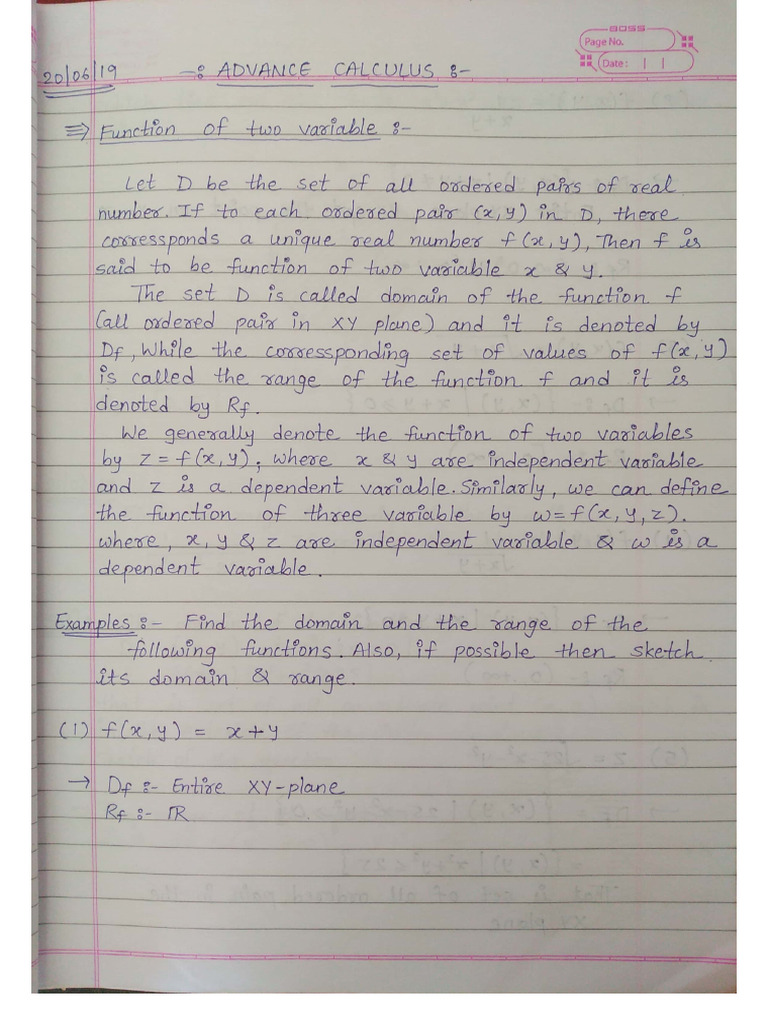 BOSS
Page No.
Date : | |
20/06/19 -: ADVANCE CALCULUS :-
⇒ Function of two variable :-
Let D be the set of all ordered pairs of real
number. If to each ordered pair (x, y) in D, there
corressponds a unique real number f(x, y), Then f is
said to be function of two variable x & y.
The set D is called domain of the function f
(all ordered pair in XY plane) and it is denoted by
Df, While the corressponding set of values of f(x, y)
is called the range of the function f and it is
denoted by Rf.
We generally denote the function of two variables
by z = f(x, y), where x & y are independent variable
and z is a dependent variable. Similarly, we can define
the function of three variable by w=f(x, y, z).
where, x, y & z are independent variable & w is a
dependent variable.
Examples :- Find the domain and the range of the
following functions. Also, if possible then sketch
its domain & range.
(1) f(x, y) = x+y
→ Df :- Entire XY-plane
Rf :- IR